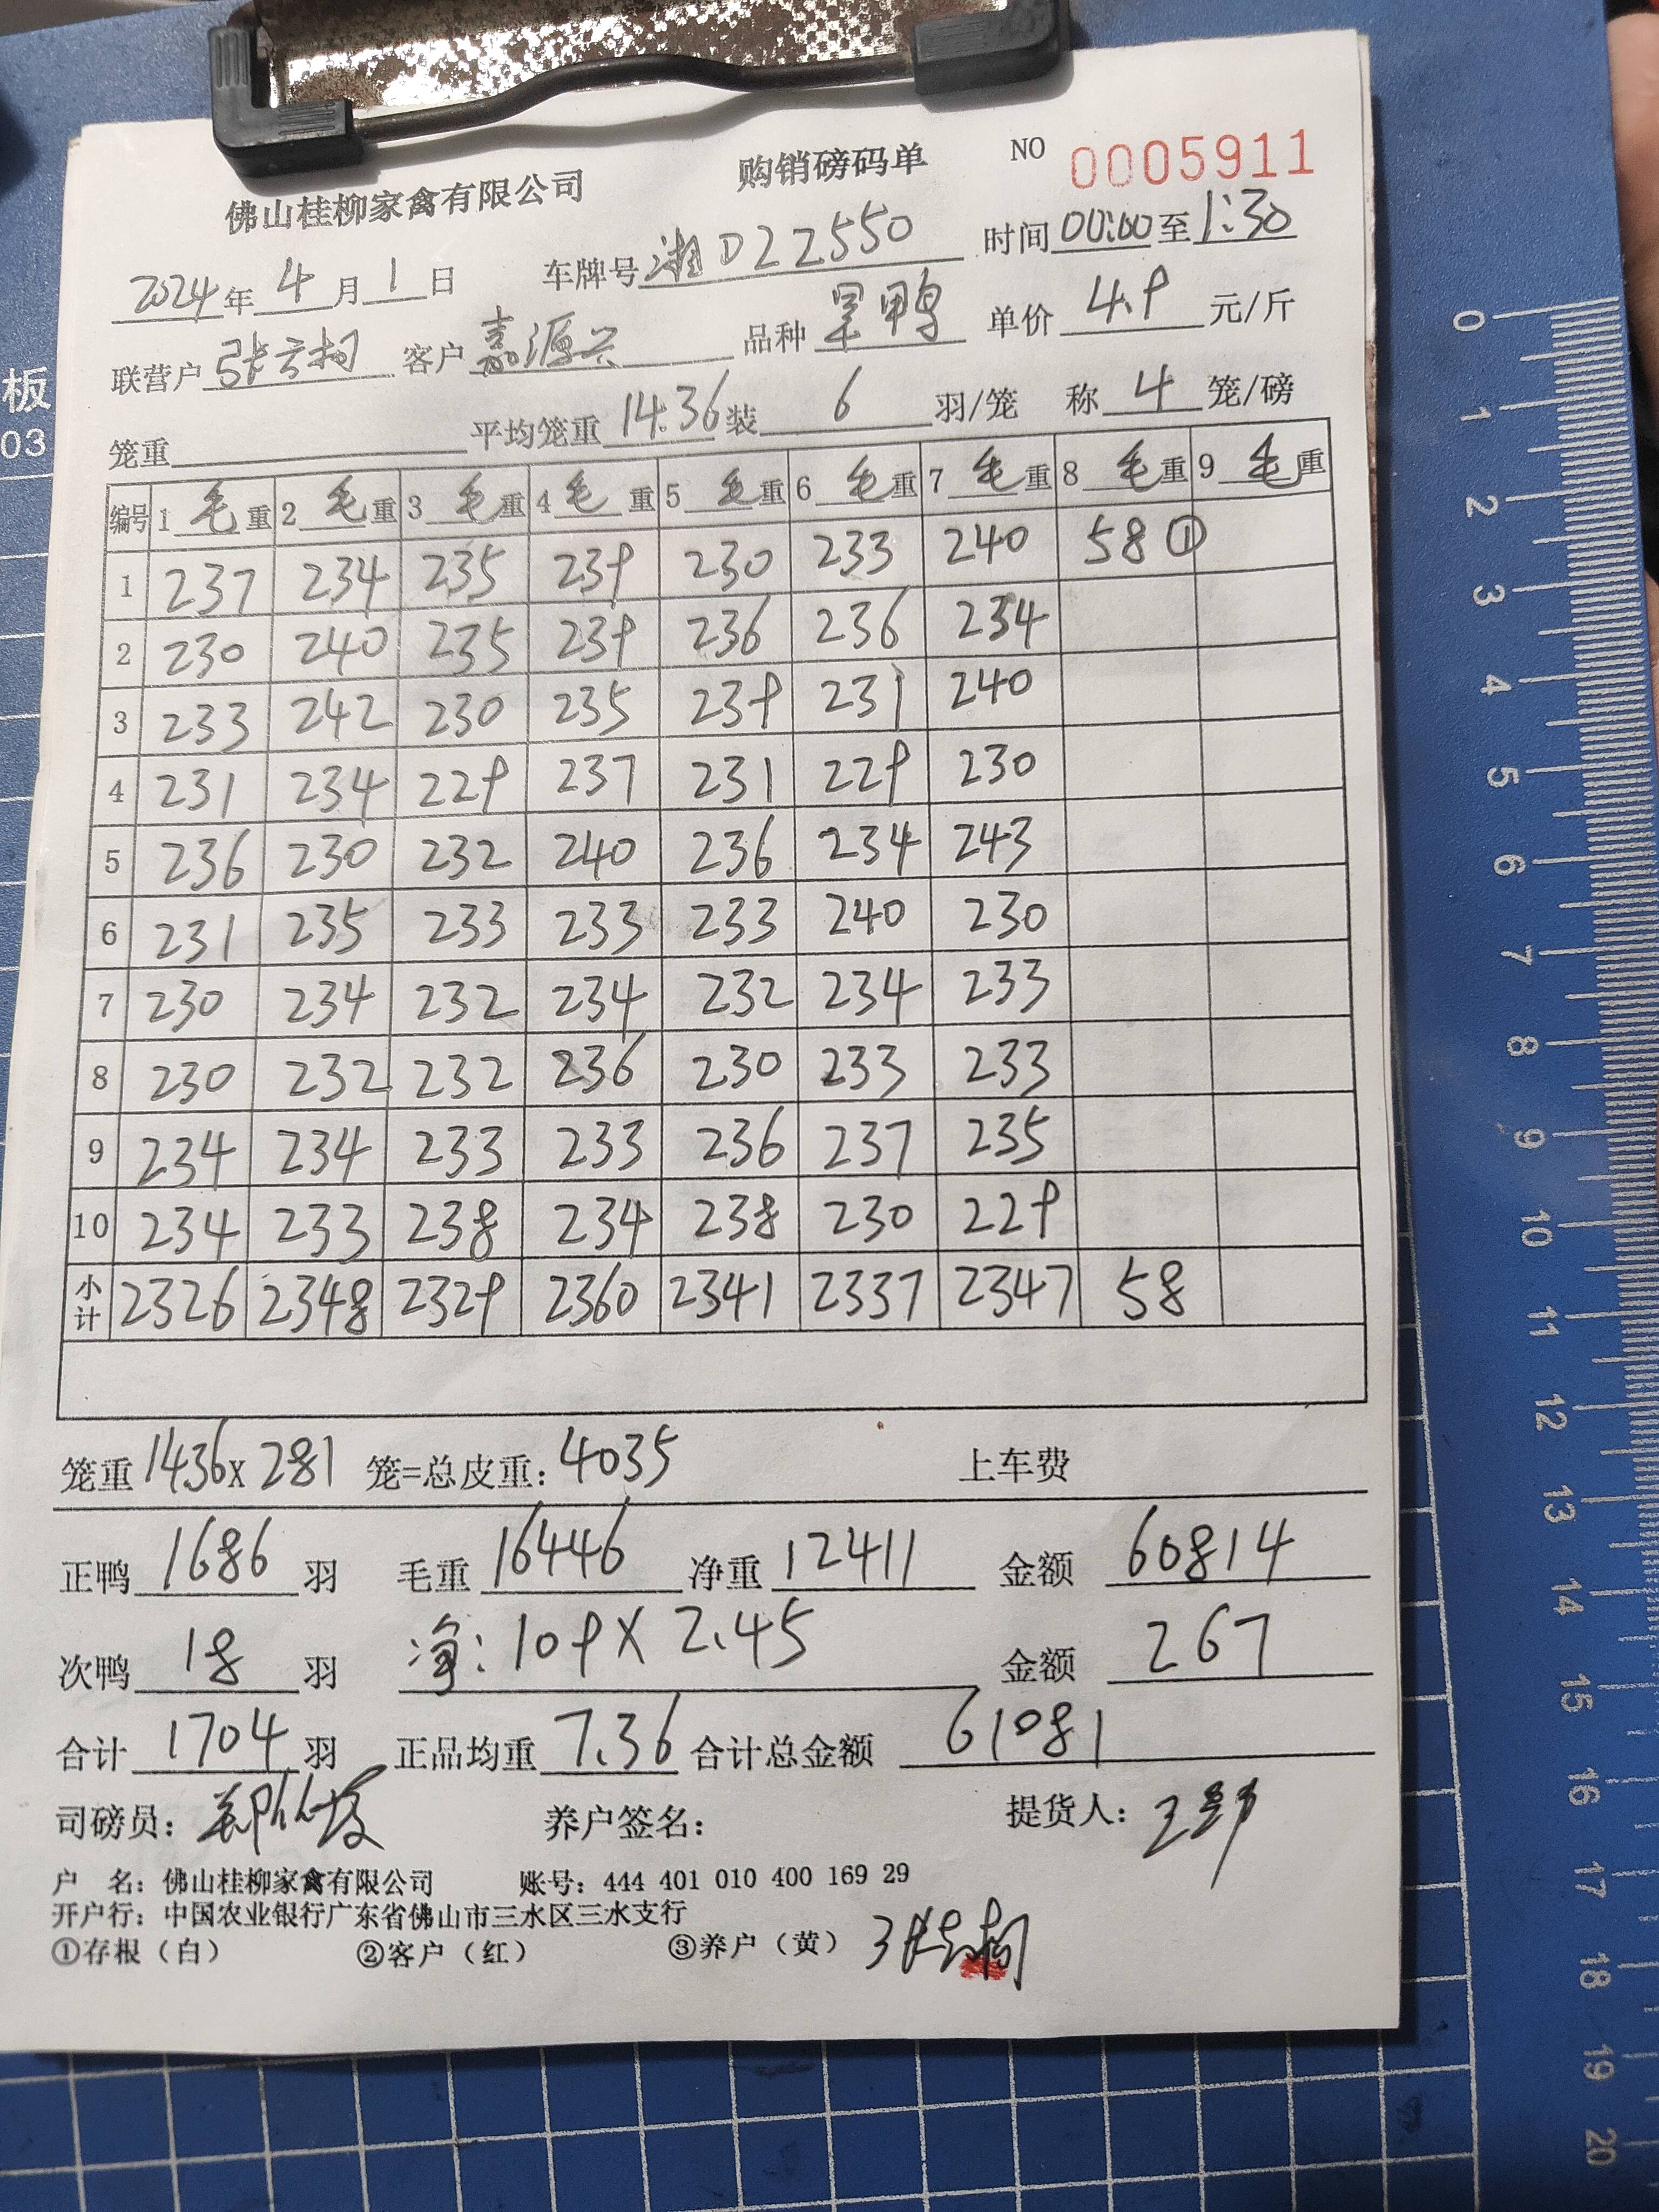 佛山桂柳家禽有限公司 购销磅码单 NO 0005911
2024年4月1日 车牌号湘D22550 时间00:00至1:30
联营户 客户嘉源兴 品种 单价4.9元/斤
笼重 平均笼重14.36装6羽/笼 称4笼/磅
编号 1毛重 2毛重 3毛重 4毛重 5毛重 6毛重 7毛重 8毛重 9毛重
1 237 234 235 239 230 233 240 58①
2 230 240 235 239 236 236 234
3 233 242 230 235 239 231 240
4 231 234 229 237 231 229 230
5 236 230 232 240 236 234 243
6 231 235 233 233 233 240 230
7 230 234 232 234 232 234 233
8 230 232 232 236 230 233 233
9 234 234 233 233 236 237 235
10 234 233 238 234 238 230 229
小计 2326 2348 2329 2360 2341 2337 2347 58
笼重1436X281 笼=总皮重:4035 上车费
正鸭1686羽 毛重16446 净重12411 金额60814
次鸭18羽 净:109X2.45 金额267
合计1704羽 正品均重7.36合计总金额61081
司磅员: 养户签名: 提货人:
户 名:佛山桂柳家禽有限公司 账号:444 401 010 400 169 29
开户行:中国农业银行广东省佛山市三水区三水支行
①存根(白) ②客户(红) ③养户(黄)
板
03
0 1 2 3 4 5 6 7 8 9 10 11 12 13 14 15 16 17 18 19 20